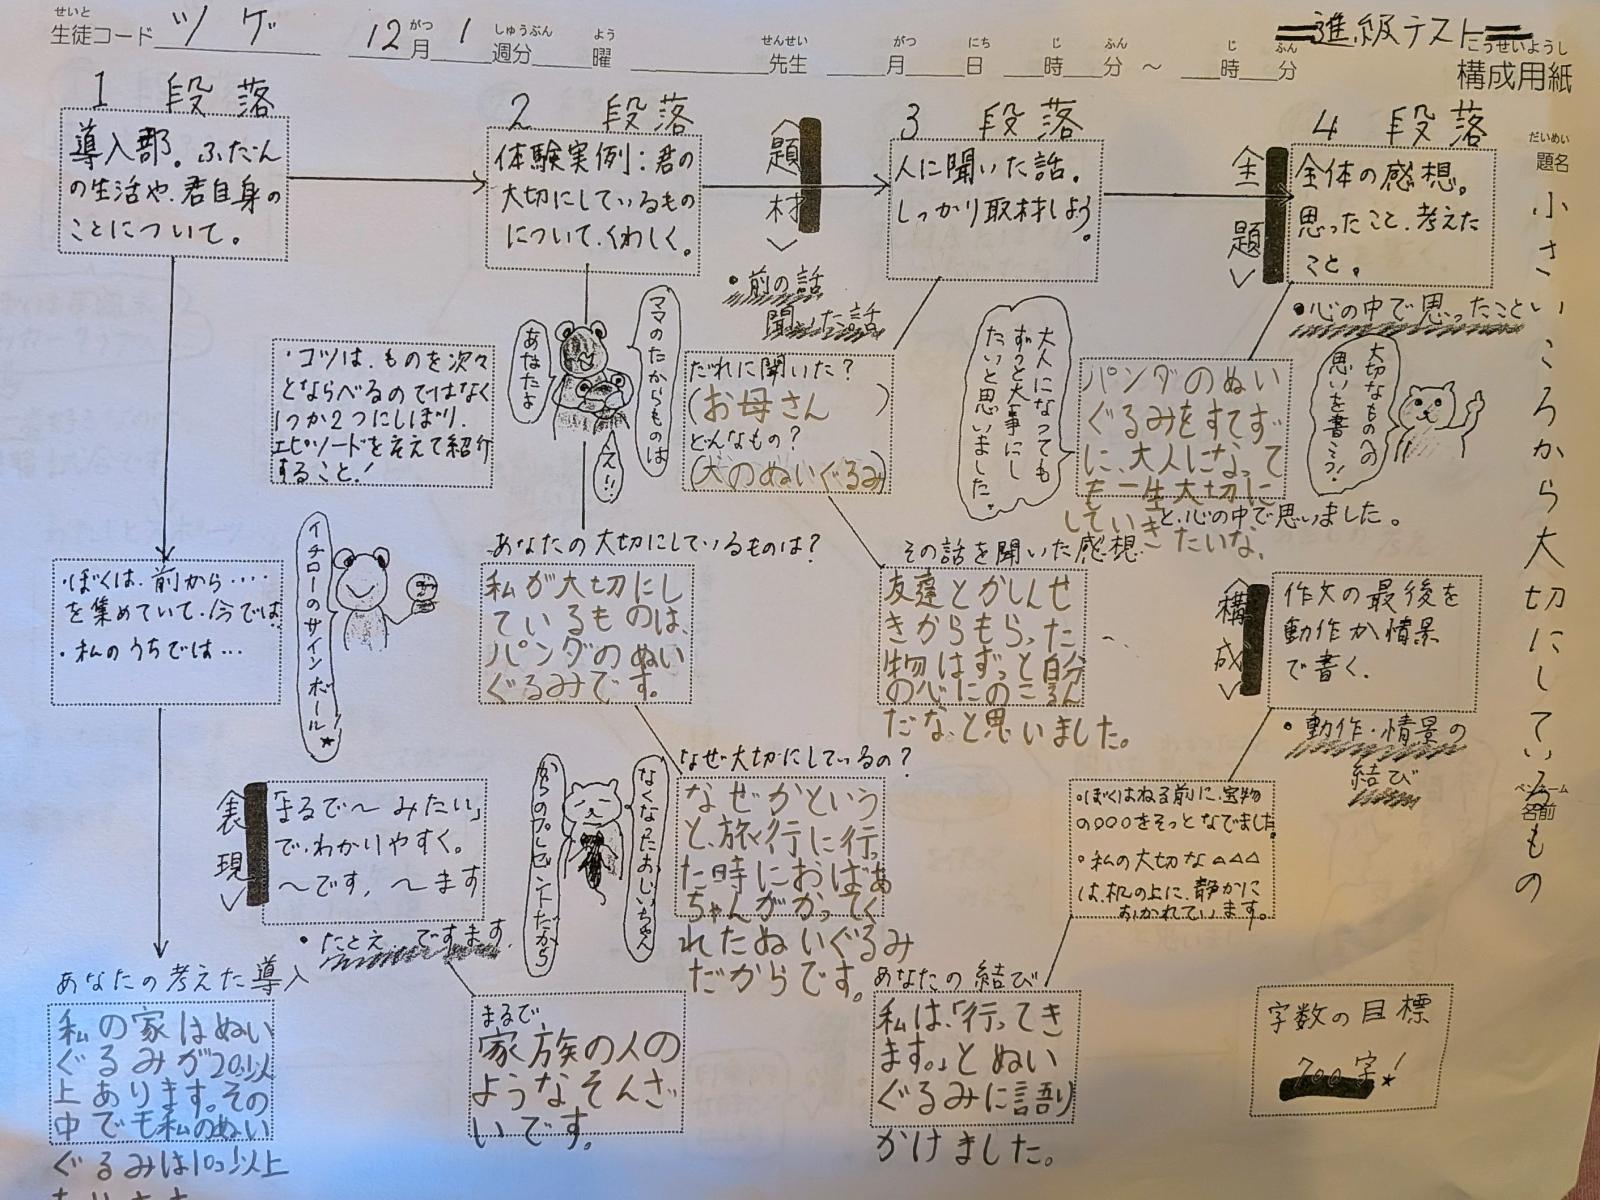 せいと
生徒コード ツゲ
12月1週分 曜 先生 月 日 時 分 ～ 時 分
がつ しゅうぶん よう せんせい がつ にち じ ふん じ ふん
進級テスト
こうせいようし
構成用紙
だいめい
題名
小さいころから大切にしているもの
ペンネーム
名前
1 段落
導入部。ふだん
の生活や、君自身の
ことについて。
・ぼくは、前から‥‥
を集めていて、今では
・私のうちでは…
イチローのサインボール★
〈表現〉
「まるで～みたい」
で、わかりやすく。
～です，～ます
・たとえ ですます
あなたの考えた導入
私の家はぬい
ぐるみが20以
上あります。その
中でも私のぬい
ぐるみは10こ以上
あります
まるで
家族の人の
ようなそんざ
いです。
2 段落
体験実例：君の
大切にしているもの
について、くわしく。
・コツは、ものを次々
とならべるのではなく
1つか2つにしぼり、
エピソードをそえて紹介
すること！
ママのたからものは
あなたよ
え!!
あなたの大切にしているものは？
私が大切にし
ているものは、
パンダのぬい
ぐるみです。
なくなったおじいちゃん
からのプレゼントだから
なぜ大切にしているの？
なぜかという
と、旅行に行っ
た時におばあ
ちゃんがかってく
れたぬいぐるみ
だからです。
〈題材〉
・前の話
聞いた話
3 段落
人に聞いた話。
しっかり取材しよう。
だれに聞いた？
（お母さん）
どんなもの？
（犬のぬいぐるみ）
大人になっても
ずっと大事にし
たいと思いました。
その話を聞いた感想
友達とかしんせ
きからもらった
物はずっと自分
の心にのこるん
だな、と思いました。
〈主題〉
4 段落
全体の感想。
思ったこと、考えた
こと。
・心の中で思ったこと
大切なものへの
思いを書こう！
パンダのぬい
ぐるみをすてず
に、大人になって
も一生大切に
していきたいな、
と、心の中で思いました。
〈構成〉
作文の最後を
動作か情景
で書く。
・動作・情景の
結び
・ぼくはねる前に、宝物
の○○○をそっとなでました。
・私の大切な△△△
は、机の上に、静かに
おかれています。
あなたの結び
私は、「行ってき
ます。」とぬい
ぐるみに語り
かけました。
字数の目標
700字！★